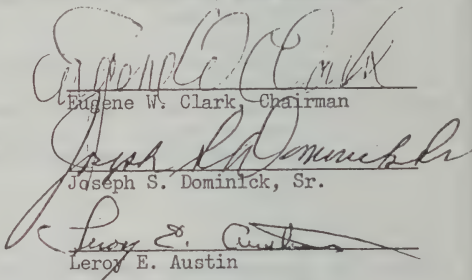 Eugene W. Clark
Eugene W. Clark, Chairman
Joseph S. Dominick Sr
Joseph S. Dominick, Sr.
Leroy E. Austin
Leroy E. Austin